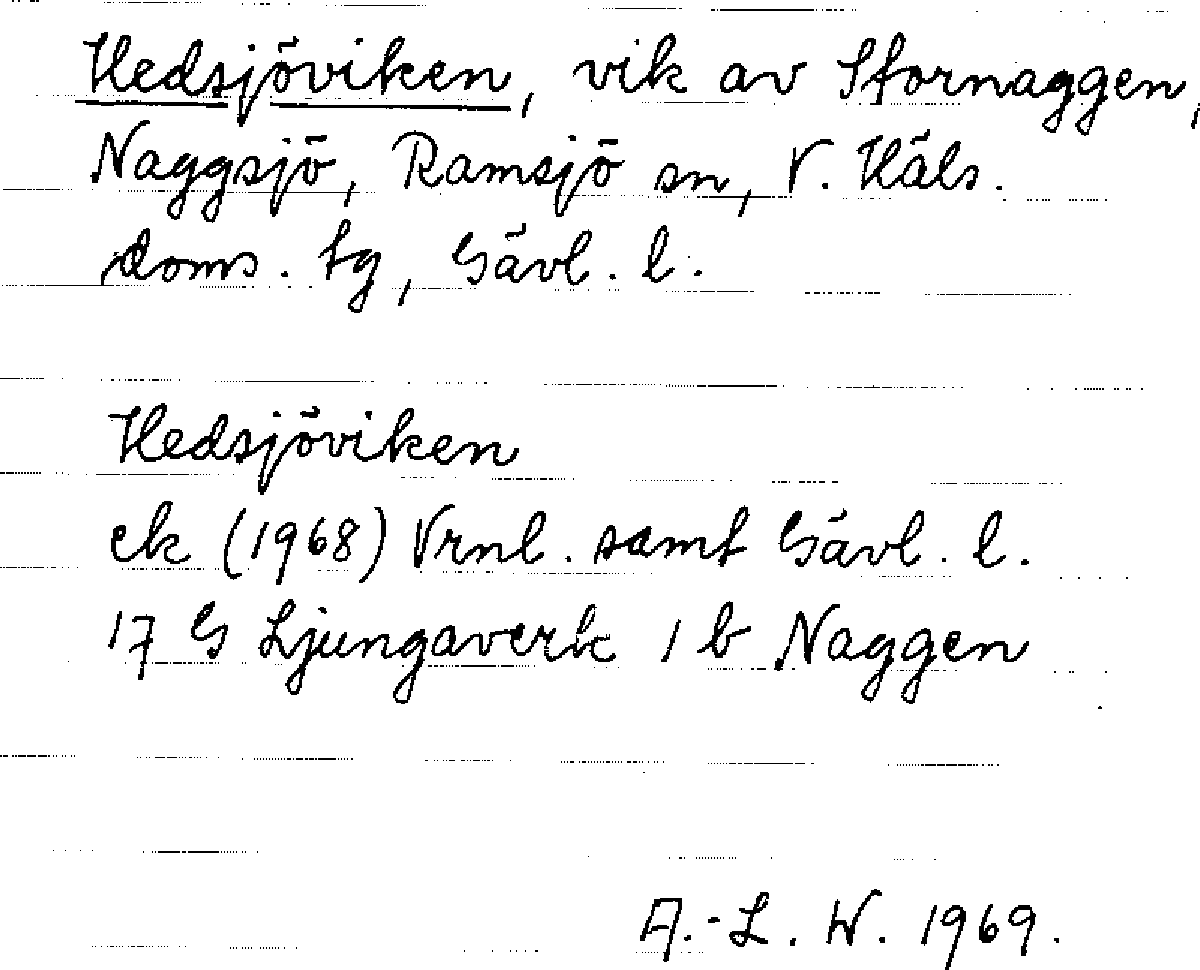 Hedsjöviken, vik av Stornaggen,
Naggsjö, Ramsjö sn, V. Häls.
doms. tg, Gävl. l.
Hedsjöviken
ek (1968) Vrnl. samt Gävl. l.
17 G Ljungaverk 1 b Naggen
A.-L. W. 1969.